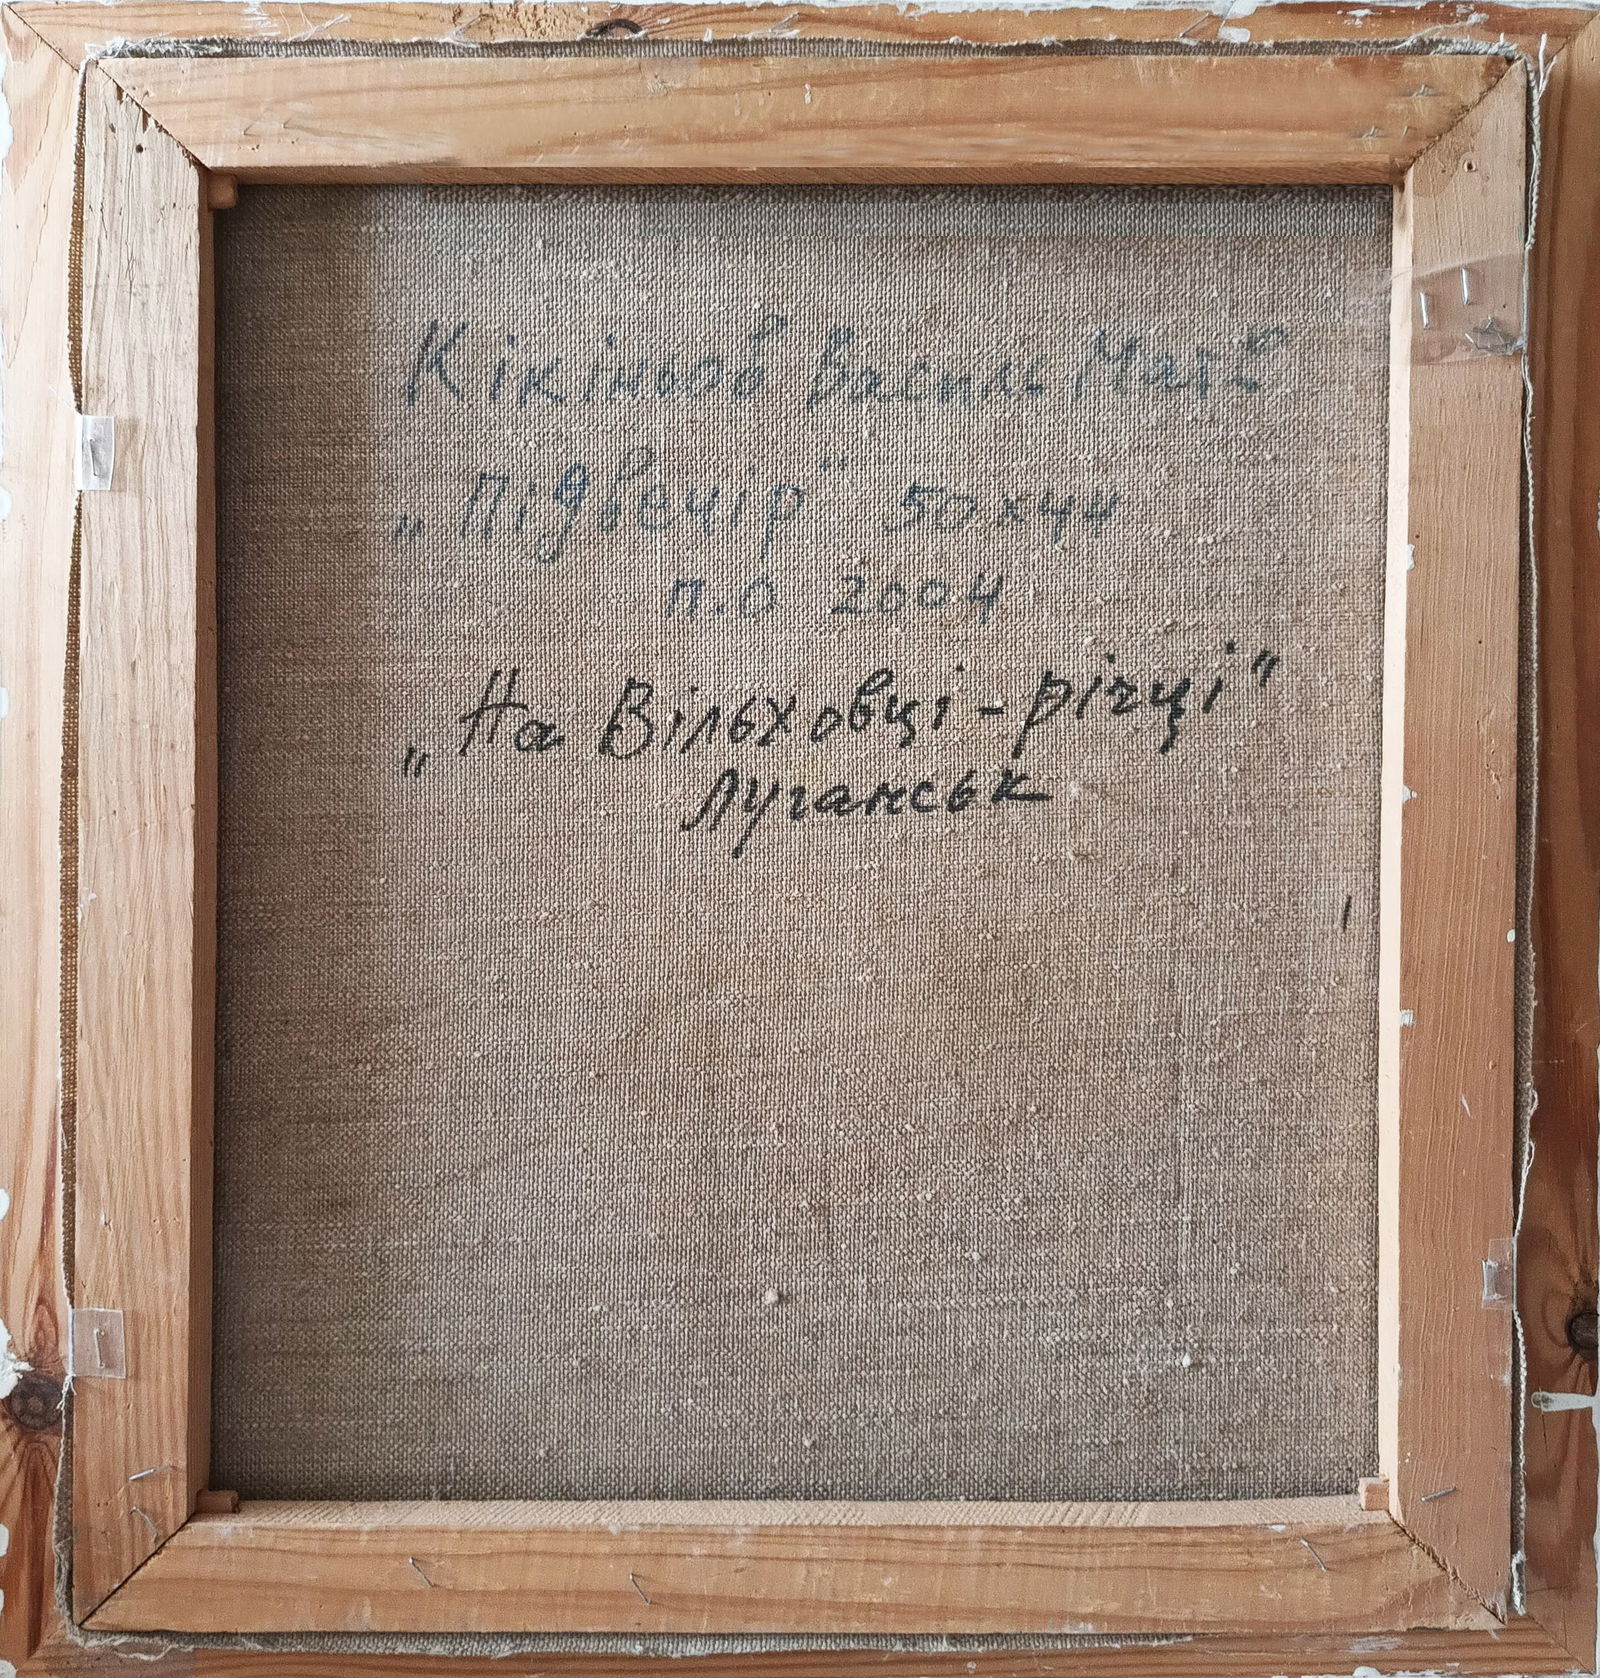 Кікіньов Василь Мат-
„Підвечір" 50х44
п.о 2004
„На Вільховці - річці"
Луганськ